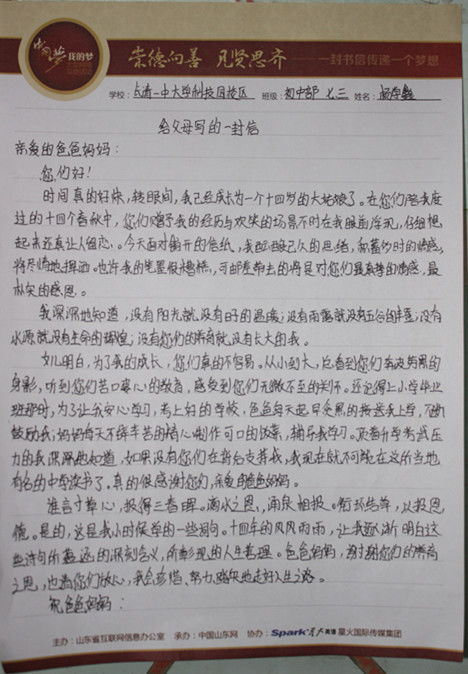 中国梦 我的梦
崇德向善 见贤思齐 一封书信传递一个梦想
学校: 上海一中大学科技园校区 班级: 初中部 七三 姓名:
给父母写的一封信
亲爱的爸爸妈妈:
您们好!
时间真的好快,转眼间,我已经成长为一个十四岁的大姑娘了。在你们陪我度
过的十四个春秋中,您们赠予我的经历与欢笑的场景不时在我眼前浮现,仔细想
起来还真让人留恋。今天面对铺开的信纸,我酝酿已久的思绪,和蓄的情感,
将尽情地挥洒。也许我的笔墨很糟糕,可却带出的将是对你们最真挚的情感,最
朴实的感恩。
我深深地知道,没有阳光就没有好的温暖;没有雨露就没有五谷的丰登;没有
水源就没有生命的辉煌;没有您们的养育就没有长大的我。
女儿明白,为了我的成长,您们真的不容易。从小到大,总看到您们奔波劳累的
身影,听到您们苦口婆心的教育,感受到您们无微不至的关怀。还记得上小学毕业
班那时,为了让我安心学习,考上好的学校,爸爸每天起早受累的接送我上学,不断
鼓励我;妈妈每天不辞辛苦的精心制作可口的饭菜,辅导我学习。顶着升学考试压
力的我深深地知道,如果没有您们在背后支持我,我现在就不可能在这所当地
有名的中学读书了。真的很感谢您们,亲爱的爸爸妈妈。
谁言寸草心,报得三春晖。滴水之恩,涌泉相报。衔环结草,以报恩
德。是的,这是我小时候学的一些词句。十四年的风风雨雨,让我逐渐明白这
些诗句所蕴涵的深刻含义,所彰现的人生哲理。爸爸妈妈,谢谢您们的养育
之恩,也请您们放心,我会珍惜、努力、踏实地走好人生之路。
祝爸爸妈妈:
主办:山东省互联网信息办公室 承办:中国山东网 协办:Spark 星火英语 星火国际传媒集团